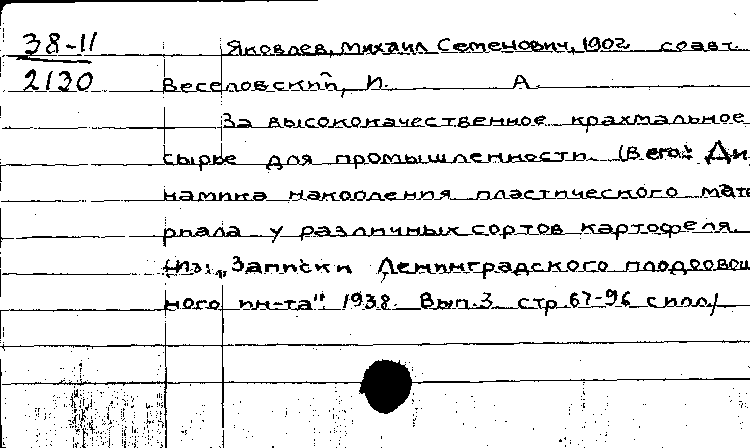 38-11 Яковлев, Михаил Семенович, 1902 соавт.
2130 Веселовский, И. А.
За высококачественное крахмальное
сырье для промышленности. (В его: Ди
намика накопления пластического мате
риала у различных сортов картофеля.
(Из: „Записки Ленинградского плодоовощ
ного ин-та" 1938. Вып.3 стр.67-96 с илл./